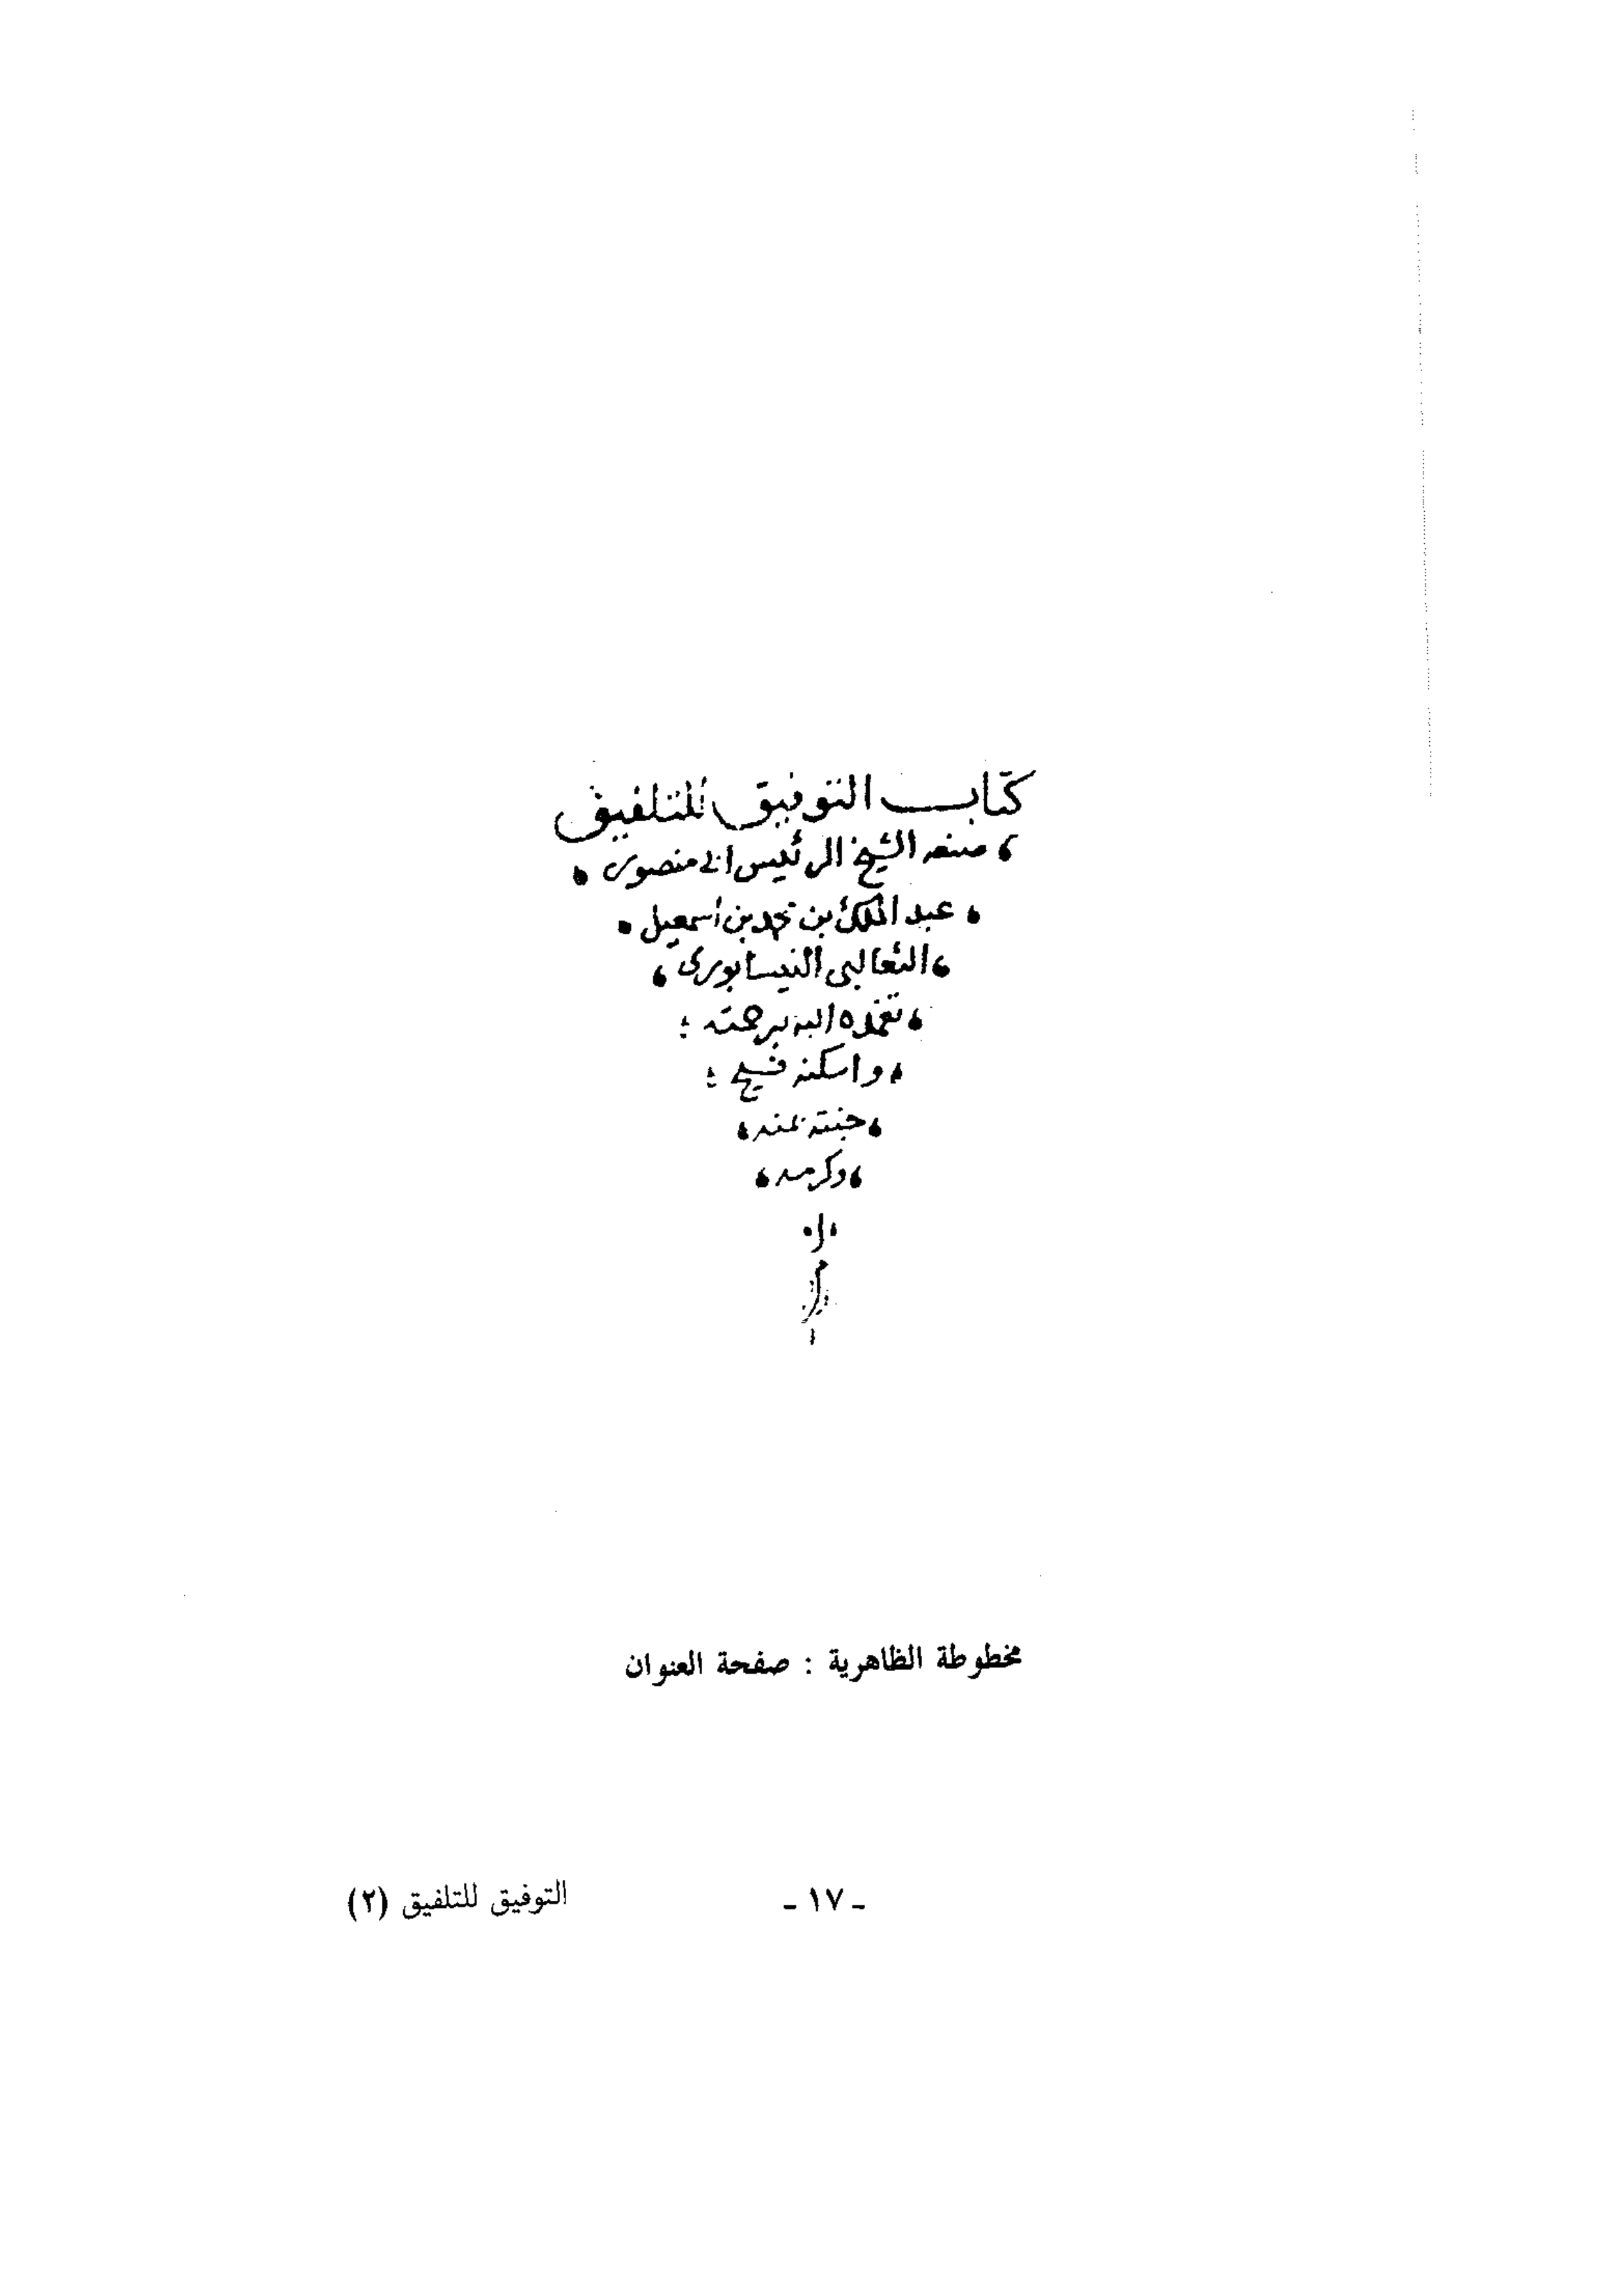 كتاب التوفيق للتلفيق
صنعه الشيخ الرئيس ابى منصور
عبد الملك بن محمد بن اسمعيل
الثعالبى النيسابورى
تغمده الله برحمته
واسكنه فسيح
جنته بمنه
وكرمه
مخطوطة الظاهرية : صفحة العنوان
- ١٧ -
التوفيق للتلفيق (٢)